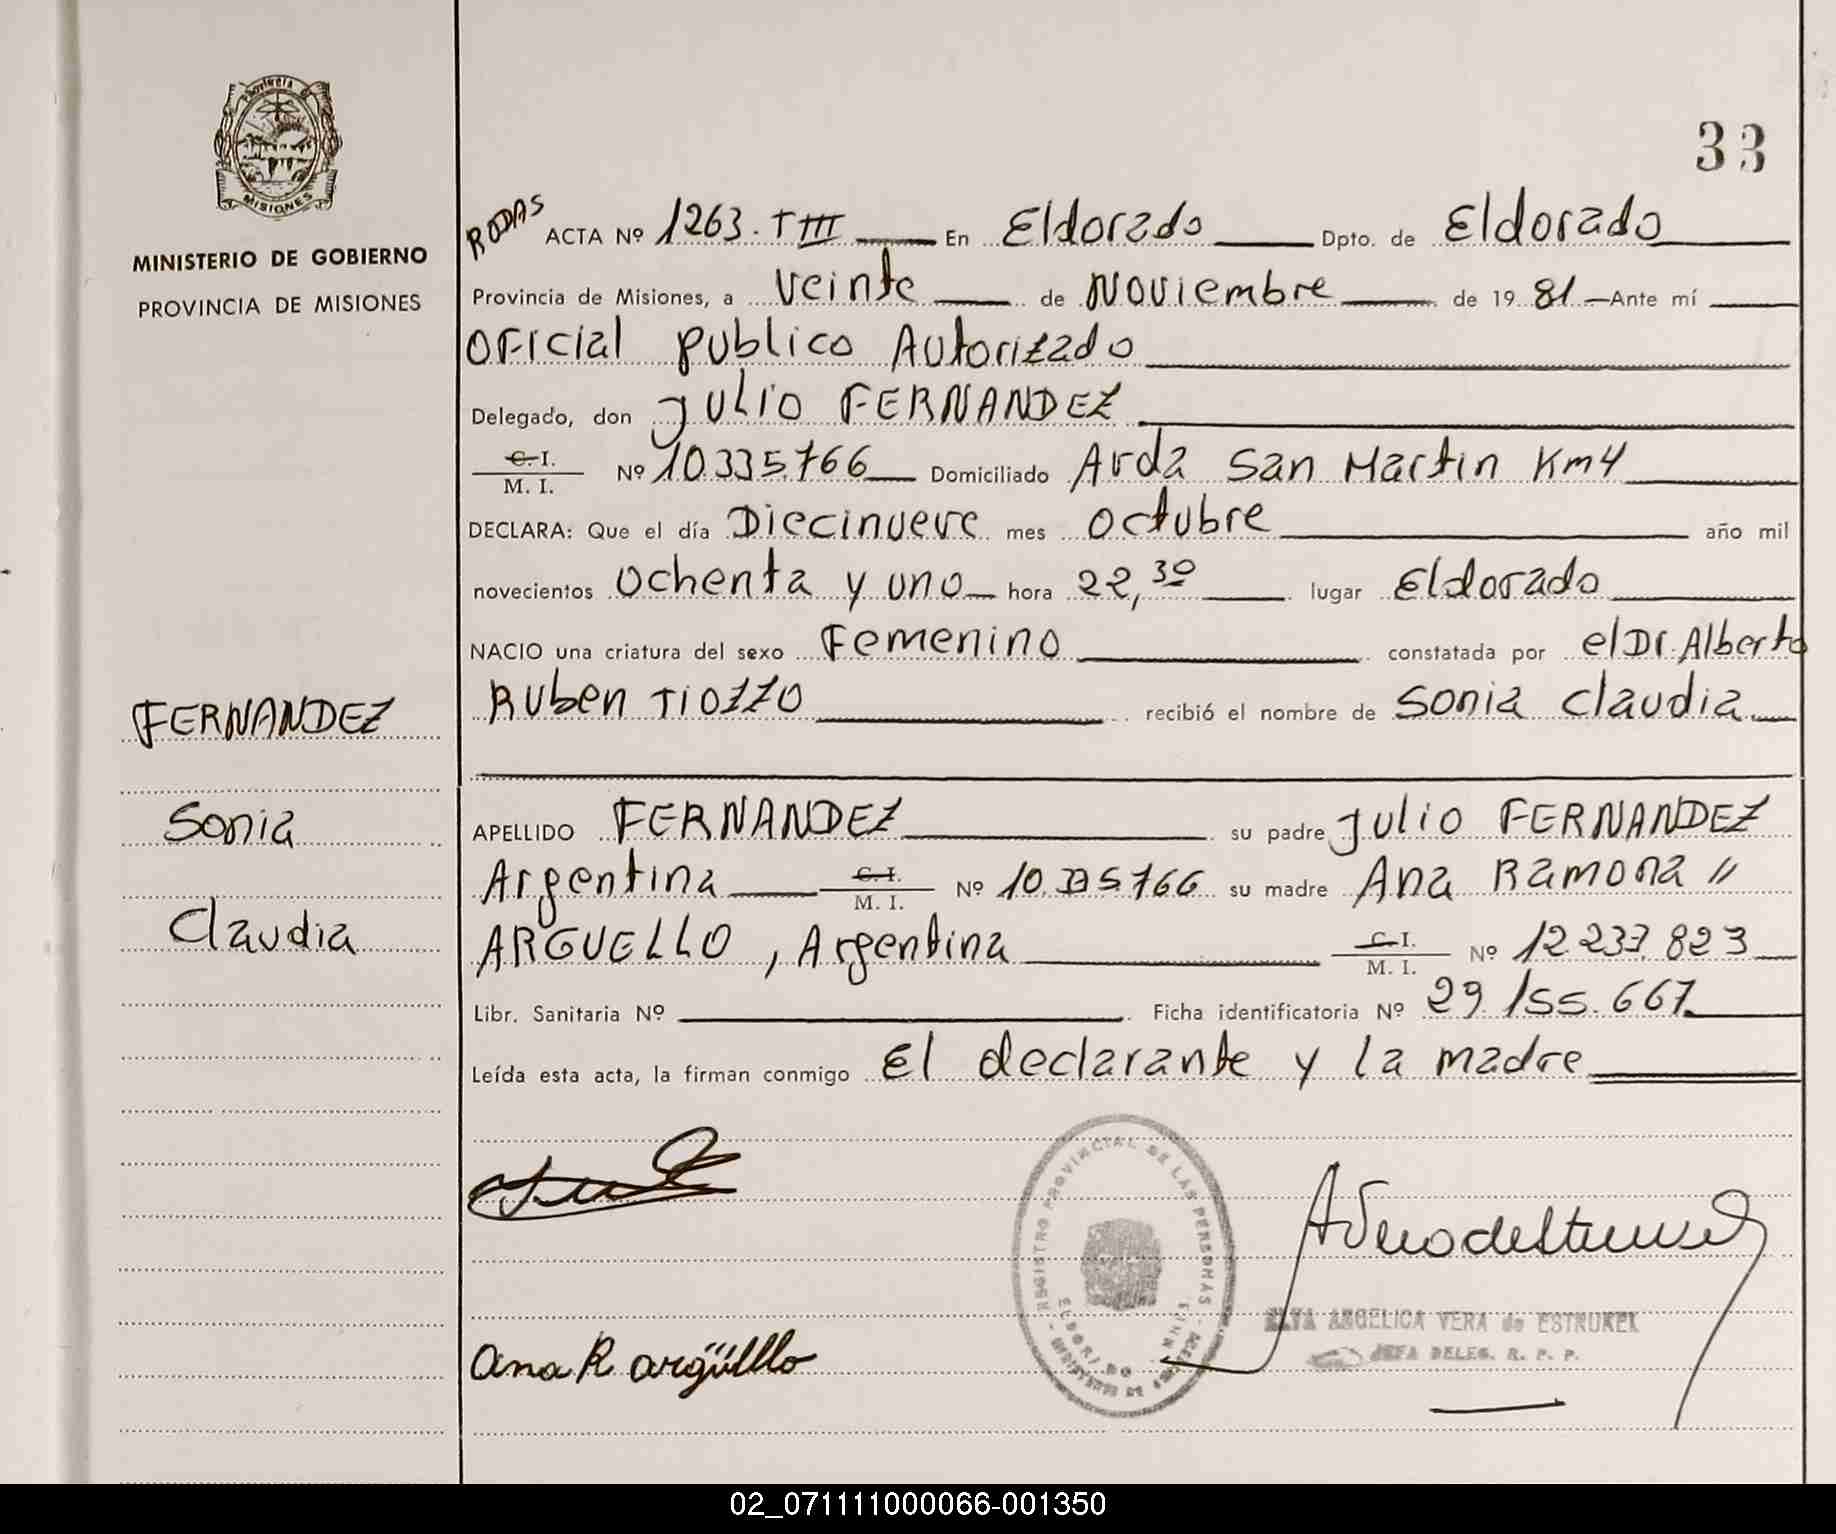 Provincia
MISIONES
MINISTERIO DE GOBIERNO
PROVINCIA DE MISIONES
FERNANDEZ
Sonia
Claudia
33
RODAS ACTA Nº 1263. T III En Eldorado Dpto. de Eldorado
Provincia de Misiones, a veinte de Noviembre de 1981 Ante mí
Oficial publico Autorizado
Delegado, don Julio FERNANDEZ
C. I. M. I. Nº 10.335.766 Domiciliado Avda San Martin Km4
DECLARA: Que el día Diecinueve mes octubre año mil
novecientos ochenta y uno hora 22,30 lugar Eldorado
NACIO una criatura del sexo Femenino constatada por el Dr. Alberto
Ruben TIOZZO recibió el nombre de Sonia Claudia
APELLIDO FERNANDEZ su padre Julio FERNANDEZ
Argentina C. I. M. I. Nº 10.335766 su madre Ana Ramona "
ARGUELLO, Argentina C. I. M. I. Nº 12.237.823
Libr. Sanitaria Nº Ficha identificatoria Nº 29.155.667
Leída esta acta, la firman conmigo El declarante y la madre
REGISTRO PROVINCIAL DE LAS PERSONAS
ELDORADO
Ana R argüello
ELVA ANGELICA VERA de ESTRUKEL
JEFA DELEG. R. P. P.
02_071111000066-001350